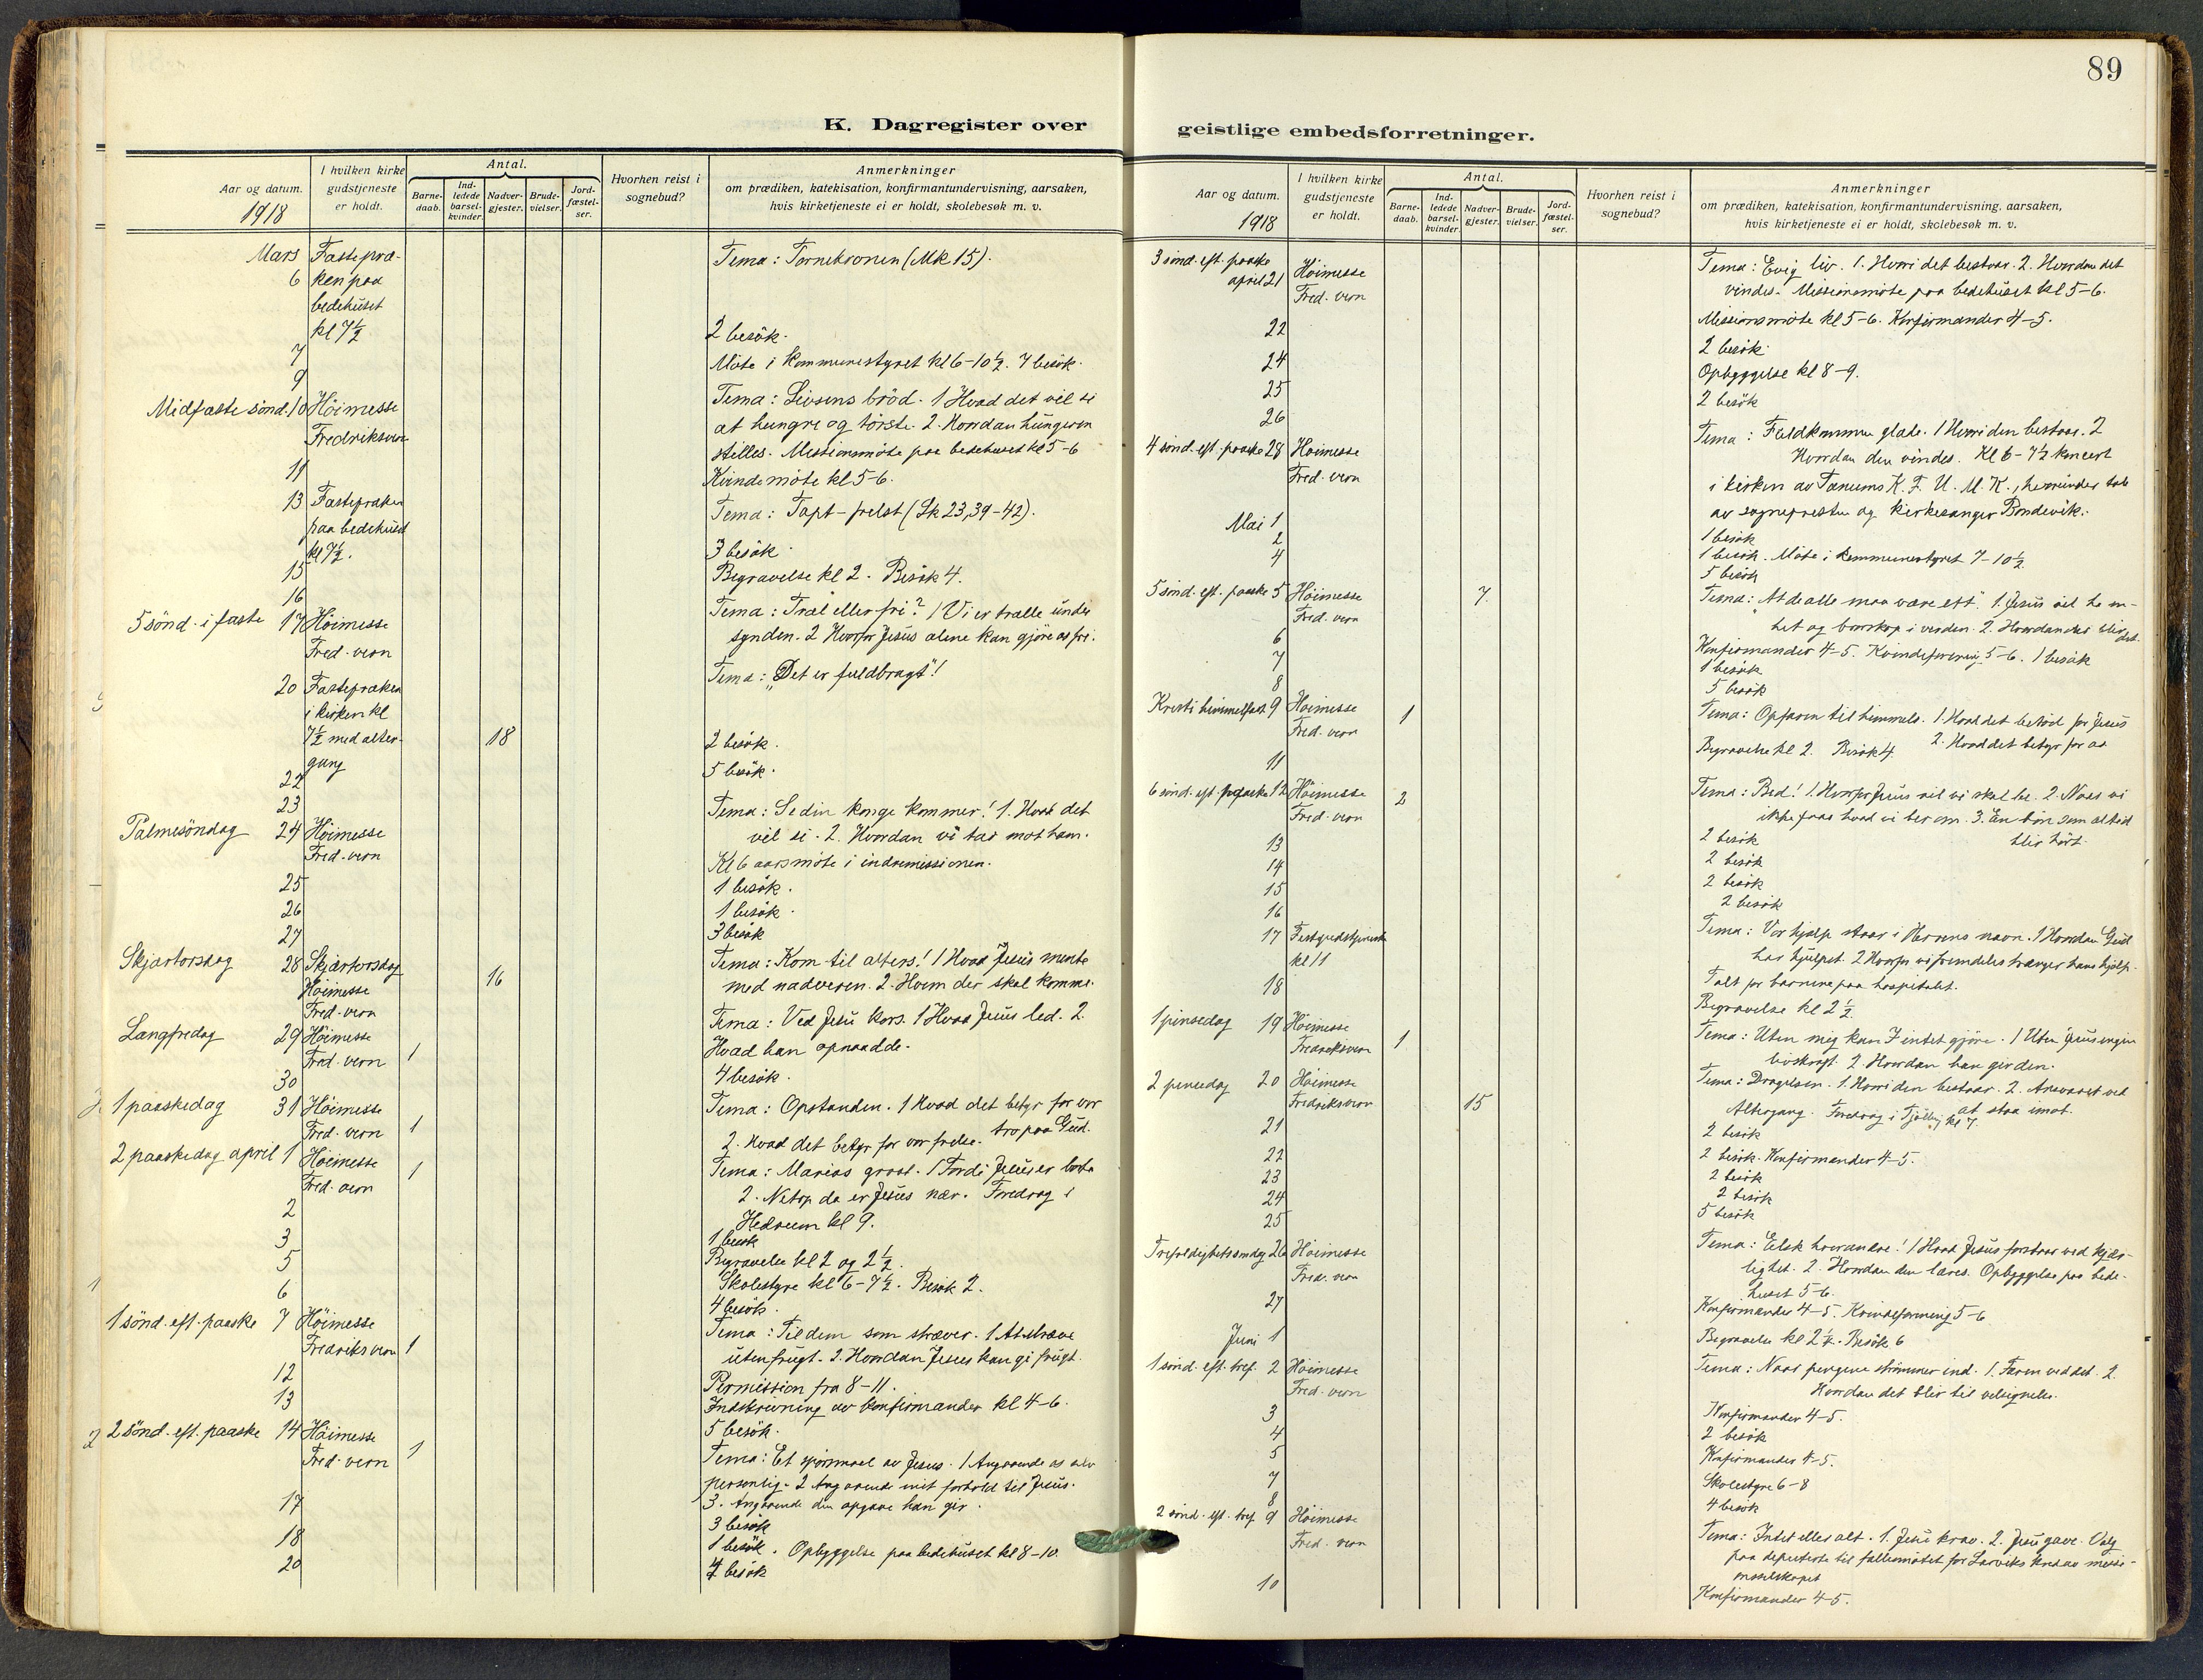 89
K. Dagregister over
geistlige embedsforretninger.
Aar og datum.
1918
I hvilken kirke
gudstjeneste
er holdt.
Antal.
Barne-
daab.
Ind-
ledede
barsel-
kvinder.
Nadver-
gjester.
Brude-
vielser.
Jord-
fæstel-
ser.
Hvorhen reist i
sognebud?
Anmerkninger
om prædiken, katekisation, konfirmantundervisning, aarsaken,
hvis kirketjeneste ei er holdt, skolebesøk m. v.
Mars Fastepræ- Tema: Tornekronen (Mk 15).
6 ken paa
bedehuset
kl 7½
7 2 besök.
9 Möte i kommunestyret kl 6-10½. 7 besök.
Midfaste sönd. 10 Höimesse Tema: Livsens bröd. 1 Hvad det vil si
Fredriksvern at hungre og törste. 2. Hvordan hungeren
stilles. Missionsmöte paa bedehuset kl 5-6
11 Kvindemöte kl 5-6.
13 Fastepræken Tema: Tapt - frelst (Lk 23,39-42).
paa bedehuset
kl 7½.
15 3 besök.
16 Begravelse kl 2. Besök 4.
5 sönd. i faste 17 Höimesse Tema: Træl eller fri? 1 Vi er trælle under
Fred.vern synden. 2 Hvorfor Jesus alene kan gjöre os fri.
20 Fastepræken Tema: "Det er fuldbragt"!
i kirken kl
7½ med alter- 18
gang
22 2 besök.
23 5 besök.
Palmesöndag 24 Höimesse Tema: Se din konge kommer! 1. Hvad det
Fred.vern vil si. 2. Hvordan vi tar mot ham.
Kl 6 aarsmöte i indremissionen.
25 1 besök.
26 1 besök.
27 3 besök
Skjærtorsdag 28 Skjærtorsdag Tema: Kom til alters! 1 Hvad Jesus mente
Höimesse 16 med nadveren. 2. Hvem der skal komme.
Fred.vern
Langfredag 29 Höimesse Tema: Ved Jesu kors. 1 Hvad Jesus led. 2.
Fred.vern 1 Hvad han opnaadde.
30 4 besök.
1 paaskedag 31 Höimesse Tema: Opstanden. 1 Hvad det betyr for vor
Fred.vern 1 tro paa Gud.
2. Hvad det betyr for vor frelse.
2 paaskedag april 1 Höimesse Tema: Marias graat. 1 Fordi Jesus er borte
Fred.vern 1 2. Netop da er Jesus nær. Foredrag i
Hedrum kl 9.
2 1 besök
3 Begravelse kl 2 og 2½.
5 Skolestyre kl 6-7½. Besök 2.
6 4 besök.
1 sönd. eft. paaske 7 Höimesse Tema: Til dem som stræver. 1 At stræve
Fredriksvern 1 uten frugt. 2. Hvordan Jesus kan gi frugt.
12 Permission fra 8-11.
13 Indskrivning av konfirmander kl 4-6.
5 besök.
2 sönd. eft. paaske 14 Höimesse Tema: Et spörsmaal av Jesus. 1 Angaaende os selv
Fred.vern 1 personlig. 2 Angaaende mit forhold til Jesus.
3. Angaaende den opgave han gir.
17 3 besök
18 1 besök. Opbyggelse paa bedehuset kl 8-10.
20 4 besök
Aar og datum.
1918
I hvilken kirke
gudstjeneste
er holdt.
Antal.
Barne-
daab.
Ind-
ledede
barsel-
kvinder.
Nadver-
gjester.
Brude-
vielser.
Jord-
fæstel-
ser.
Hvorhen reist i
sognebud?
Anmerkninger
om prædiken, katekisation, konfirmantundervisning, aarsaken,
hvis kirketjeneste ei er holdt, skolebesøk m. v.
3 sönd. eft. paaske Tema: Evig liv. 1. Hvori det bestaar. 2. Hvordan det
april 21 Höimesse vindes. Missionsmöte paa bedehuset kl 5-6.
Fred.vern
22 Missionsmöte kl 5-6. Konfirmander 4-5.
24 2 besök.
25 Opbyggelse kl 8-9.
26 2 besök
4 sönd. eft. paaske 28 Höimesse Tema: Fuldkommen glæde. 1 Hvori den bestaar. 2
Fred.vern Hvordan den vindes. Kl 6-7½ koncert
i kirken av Tanums K.F.U.M.K., herunder tale
av sognepresten og kirkesanger Bondevik.
Mai 1 1 besök
2 1 besök. Möte i kommunestyret 7-10½
4 5 besök
5 sönd. eft. paaske 5 Höimesse 7 Tema: "At de alle maa være ett". 1. Jesus vil ha en-
Fred.vern het og borskap i verden. 2. Hvordan det blir det.
6 Konfirmander 4-5. Kvindeforening 5-6. 1 besök
7 1 besök
8 5 besök
Kristi himmelfart 9 Höimesse 1 Tema: Opfaren til himmels. 1. Hvad det betöd for Jesus
Fred.vern 2. Hvad det betyr for os
11 Begravelse kl 2. Besök 4.
6 sönd. eft. paaske 12 Höimesse 2 Tema: Bed! 1. Hvorfor Jesus vil vi skal be. 2. Naar vi
Fred.vern ikke faar hvad vi ber om. 3. En bön som altid
blir hört.
13 2 besök
14 2 besök
15 2 besök
16 2 besök
17 Festgudstjeneste Tema: Vor hjælp staar i Herrens navn. 1 Hvordan Gud
kl 11 har hjulpet. 2 Hvorfor vi fremdeles trænger hans hjælp.
18 Talt for barnene paa hospitalet.
Begravelse kl 2½.
1 pinsedag 19 Höimesse Tema: Uten mig kan I intet gjöre. 1 Uten Jesus ingen
Fredriksvern 1 livskraft. 2 Hvordan han gir den.
2 pinsedag 20 Höimesse Tema: Dragelsen. 1. Hvori den bestaar. 2. Ansvaret ved
Fredriksvern 15 at staa imot.
Altergang. Foredrag i Tjölling kl 7.
21 2 besök
22 2 besök. Konfirmander 4-5.
23 2 besök
24 2 besök
25 5 besök
Trefoldighetssöndag 26 Höimesse Tema: Elsk hverandre! 1 Hvad Jesus forstaar ved kjær-
Fred.vern lighet. 2. Hvordan den læres. Opbyggelse paa bede-
huset 5-6.
27 Konfirmander 4-5. Kvindeforening 5-6
Juni 1 Begravelse kl 2½. Besök 6
1 sönd. eft. tref. 2 Höimesse Tema: Naar pengene strömmer ind. 1. Faren ved det. 2.
Fred.vern Hvordan det blir til velsignelse.
3 Konfirmander 4-5.
4 2 besök
5 Konfirmander 4-5.
7 Skolestyre 6-8
8 4 besök
2 sönd. eft. tref. 9 Höimesse Tema: Intet eller alt. 1. Jesu krav. 2. Jesu gave. Valg
Fred.vern paa deputerte til fællesmötet for Larviks kreds av missi-
onsselskapet
10 Konfirmander 4-5.